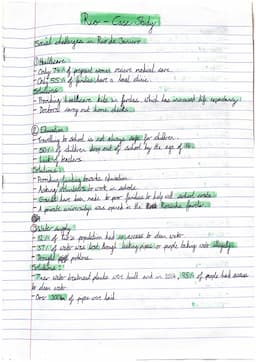 Rio - Case Study
Social challenges in Rio de Janeiro
① Healthcare
- Only 74% of pregnant women receive medical care.
- Only 55% of families have a local clinic.
Solutions:
- Providing healthcare kits in favelas, which has increased life expectancy.
- Doctors carry out home checks.
② Education
- Travelling to school is not always safe for children.
- 50% of children drop out of school by the age of 14.
- Lack of teachers.
Solutions:
- Providing funding towards education.
- Asking volunteers to work in schools.
- Grants have been made to poor families to help with school costs.
- A private university was opened in the Rocinha favela.
③ Water supply
- 12% of Rio's population had no access to clean water.
- 37% of water was lost through leaking pipes or people taking water illegally.
- Drought problems.
Solutions:
- water treatment plants were built and in 2014, 95% of people had access
to clean water.
- Over 300km of pipes were laid.